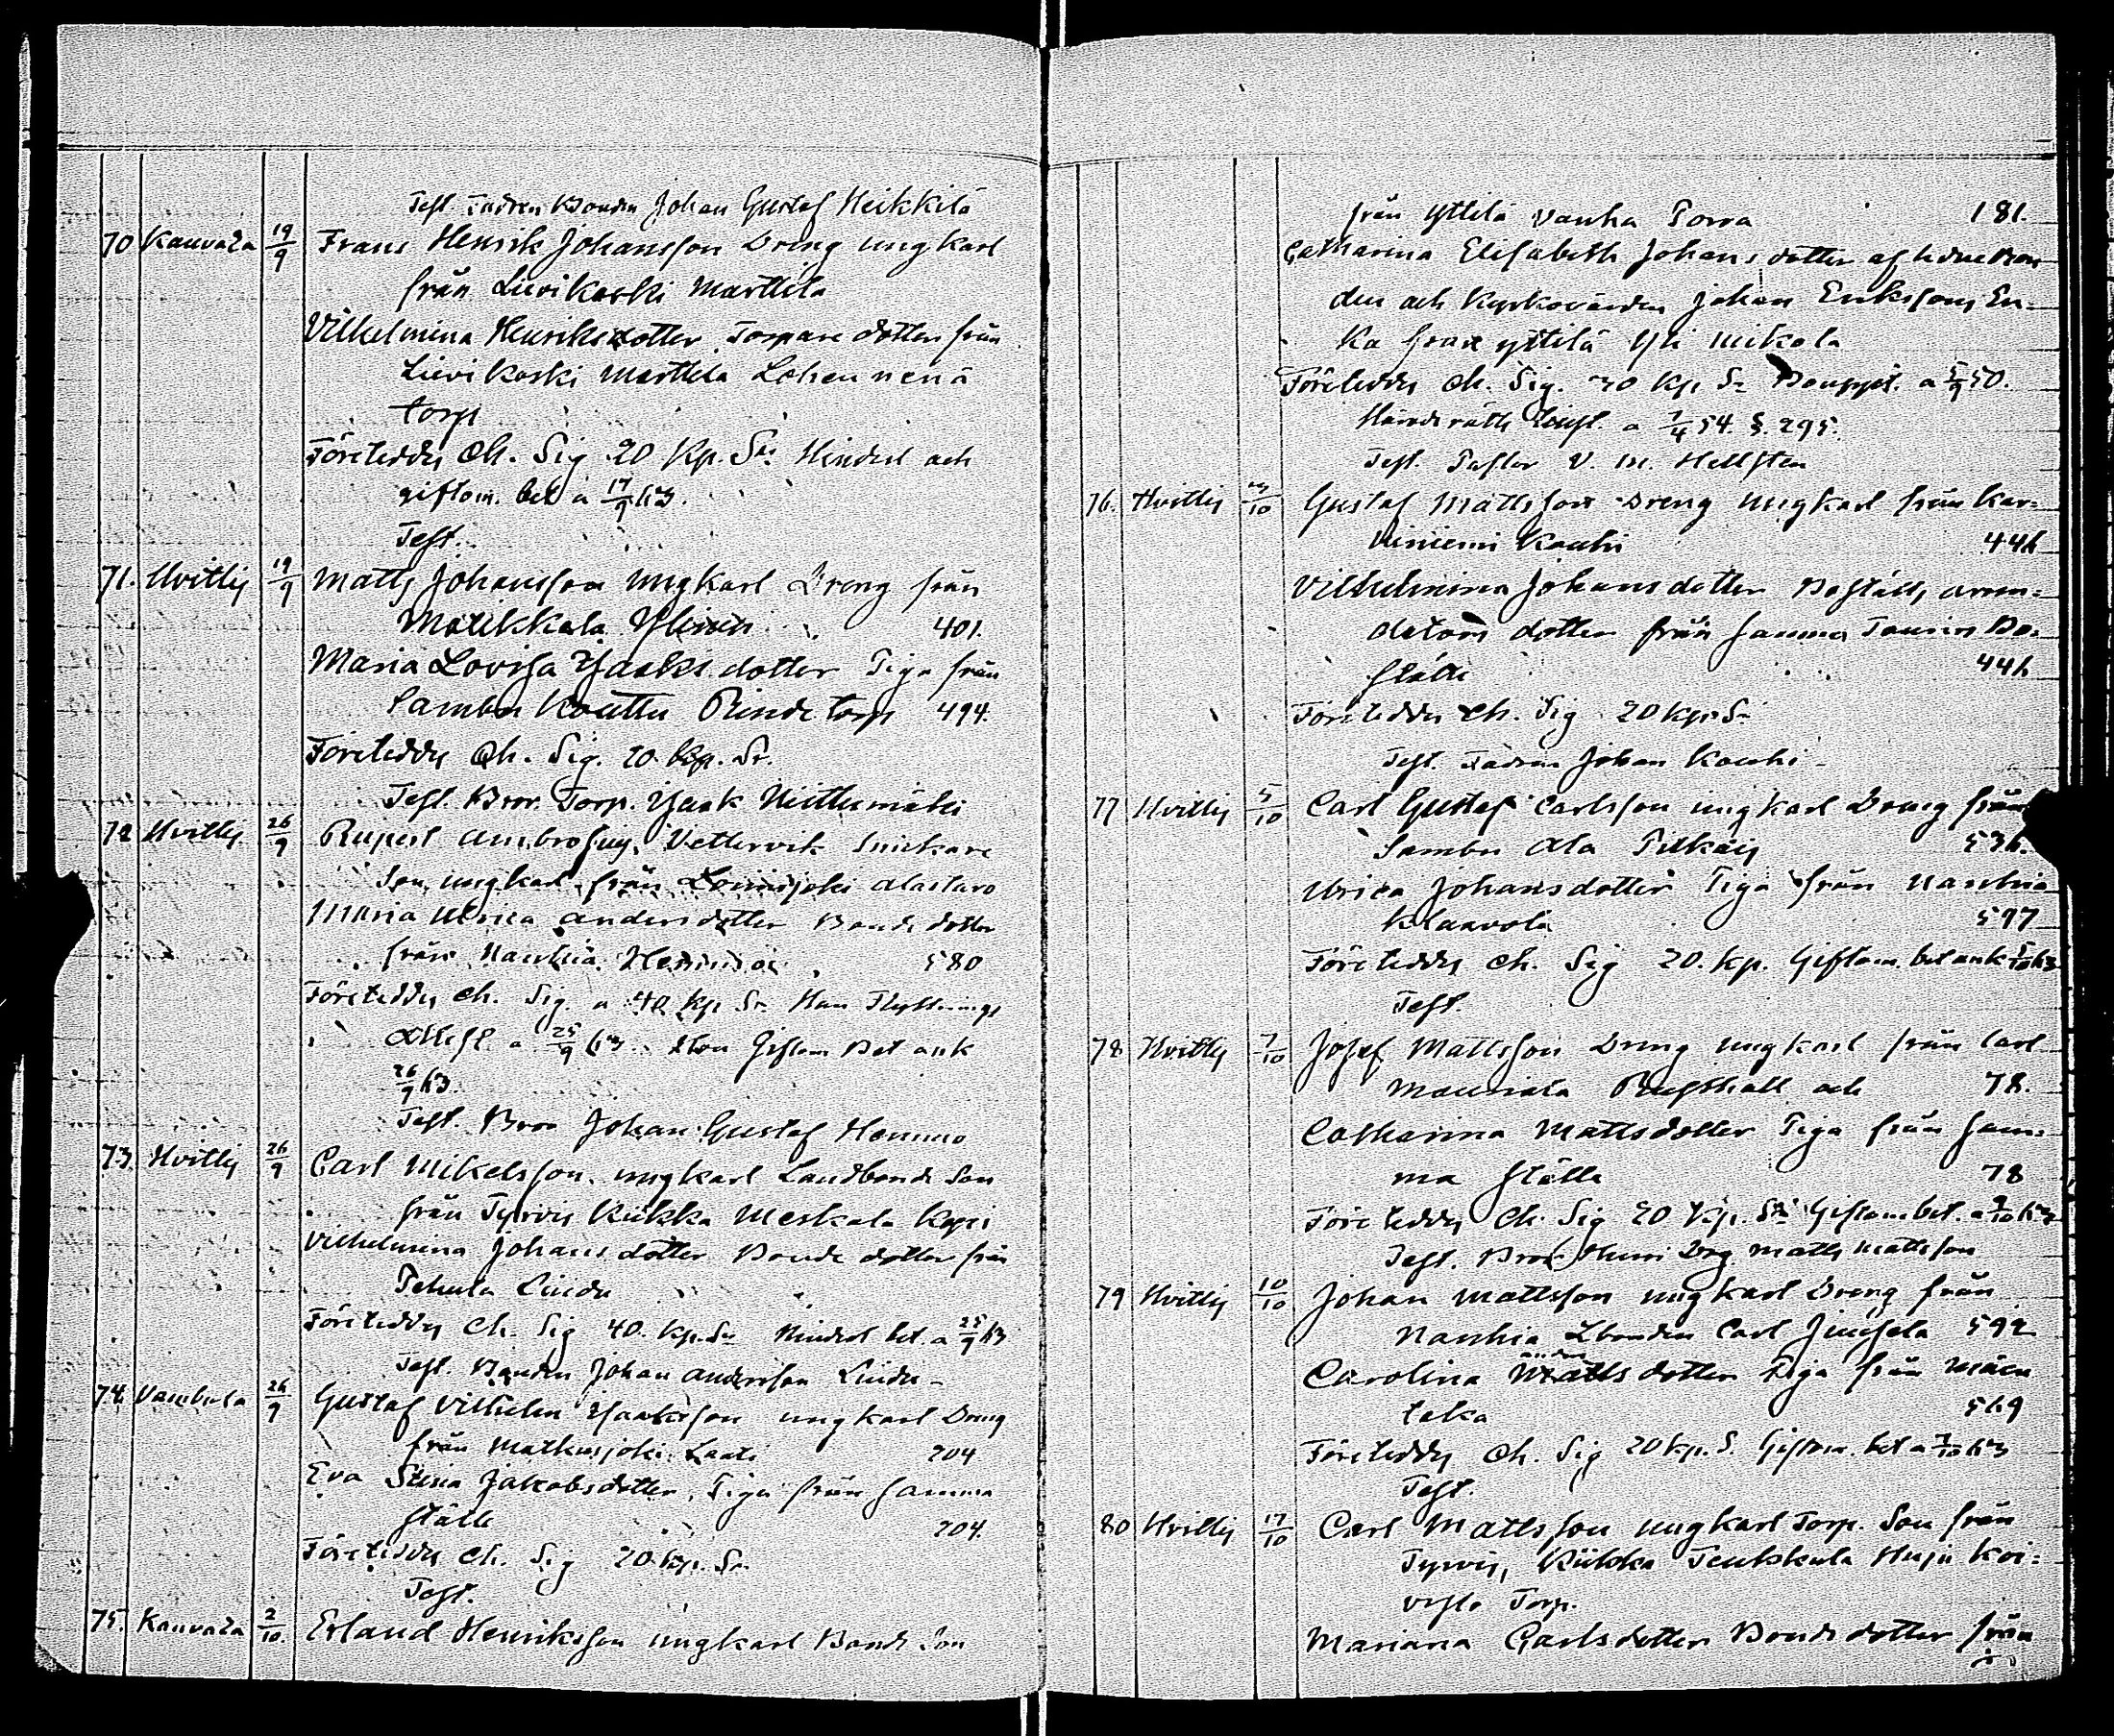 Test. Fadren Bonden Johan Gustaf Heikkilä
70 Kauvaza 19/9 Frans Henrik Johansson Dreng ungkarl
från Lievikoski Marttila
Vilhelmina Henriksdotter Torpare dotter från
Lievikoski Marttila
torp
Företeddes Ch. Sig 20 Kp. Sr Hinderl och
giftom. bet a 17/9 63.
Test.
71. Hvittis 19/9 Matts Johansson ungkarl Dreng från
401.
Maria Lovisa Jaaksdotter Piga från
Sambu Kouttu torp 494.
Företeddes Ch. Sig. 20. Kp. Sr.
Test. Bror Torp. Jaak
72 Hvittis 26/9 Rupert Ambrosius Vettervik Snickare
Son, ungkarl från Loimijoki Alastaro
Maria Ulrica Andersdotter Bonde dotter
från Nanhia 580
Företeddes Ch. Sig. a 40 Kp. Sr. Han Flyttnings
Attest a 25/9 63. Hon Giftom Bet ank
26/9 63.
Test. Bror Johan Gustaf
73. Hvittis 26/9 Carl Mikelsson ungkarl Landbonde Son
från Tyrvis Kiikka Meskala
Vilhelmina Johansdotter Bonde dotter från
Pehula
Företeddes Ch. Sig 40. Kp. Sr Hinderl bet. a 25/9 63
Test. Bonden Johan Andersson
74. Vambula 26/9 Gustaf Vilhelm Jaaksson ungkarl Dreng
från Matkusjoki 204
Eva Stina Jakobsdotter, Piga från samma
ställe 204.
Företeddes Ch. Sig 20. Kp. Sr.
Test.
75. Kauvaza 2/10. Erland Henriksson ungkarl Bonde Son
från Yttilä Vanha Porra 181.
Catharina Elisabeth Johansdotter aflidne Bon
den och Kyrkovärden Johan Erikssons En-
ka från Yttilä Yli Mikola
Företeddes Ch. Sig. Kp. Sr Bouppt. a 50.
Häradsrätts a 7/4 54. §. 295.
Test. Pastor V. M. Hellsten
76. Hvittis Gustaf Mattsson Dreng ungkarl från Kar-
hiniemi Kouhi 446
Vilhelmina Johansdotter Boställs arren-
dators dotter från samma Bo-
ställe 446
Företeddes Ch. Sig 20 Kp. Sr
Test. Fadren Johan Kouhi
77 Hvittis 5/10 Carl Gustaf Carlsson ungkarl Dreng från
Sambu Ala Pitkäis 536.
Ulrica Johansdotter Piga från Nanhia
Klaavola 597
Företeddes Ch. Sig 20. Kp. Giftom. bet ank 5/10 63
Test.
78 Hvittis 7/10 Josef Mattsson Dreng ungkarl från Carl
Rusthåll och 78.
Catharina Mattsdotter Piga från sam-
ma ställe 78
Företeddes Ch. Sig 20 Kp. Sr Giftom bet. a
Test. Bror Drg. Matts Mattsson
79 Hvittis 10/10 Johan Mattsson ungkarl Dreng från
Nanhia Lbonden Carl 592
Carolina Mattsdotter Piga från Mäen
taka 569
Företeddes Ch. Sig 20 Kp. S. Giftom. bet a 7/10 63
Test.
80 Hvittis 17/10 Carl Mattsson ungkarl Torp. Son från
Tyrvis, Kiikka Koi-
visto Torp.
Mariana Carlsdotter Bonde dotter från